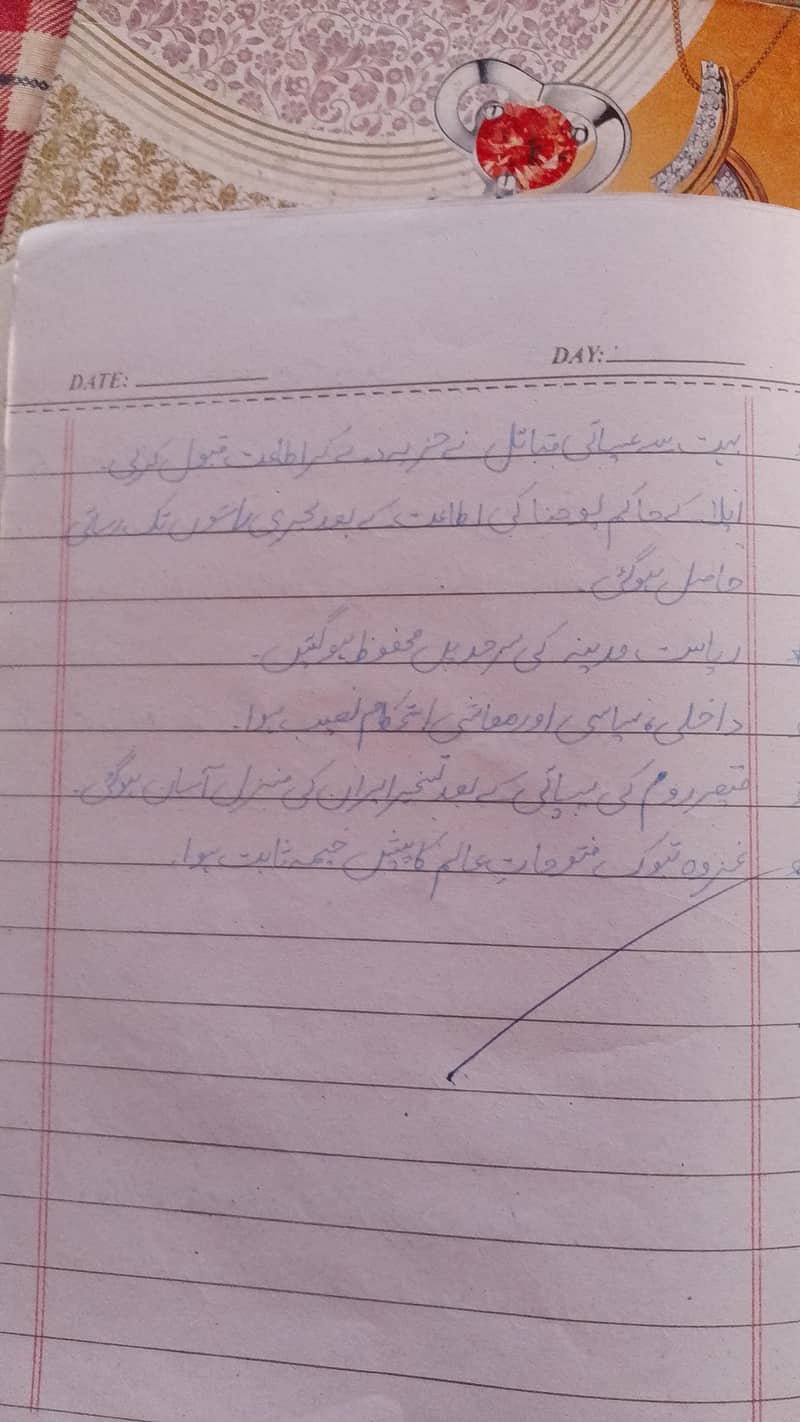 DAY:
DATE:
بہت سے عیسائی قبائل نے جزیہ دے کر اطاعت قبول کرلی۔
ایلہ کے حاکم یوحنا کی اطاعت کے بعد بحری راستوں تک رسائی
حاصل ہوگئی۔
ریاست مدینہ کی سرحدیں محفوظ ہوگئیں۔
داخلی، سیاسی اور معاشی استحکام نصیب ہوا۔
قیصر روم کی پسپائی کے بعد تسخیر ایران کی منزل آسان ہوگئی۔
غزوہ تبوک، فتوحاتِ عالم کا پیش خیمہ ثابت ہوا۔